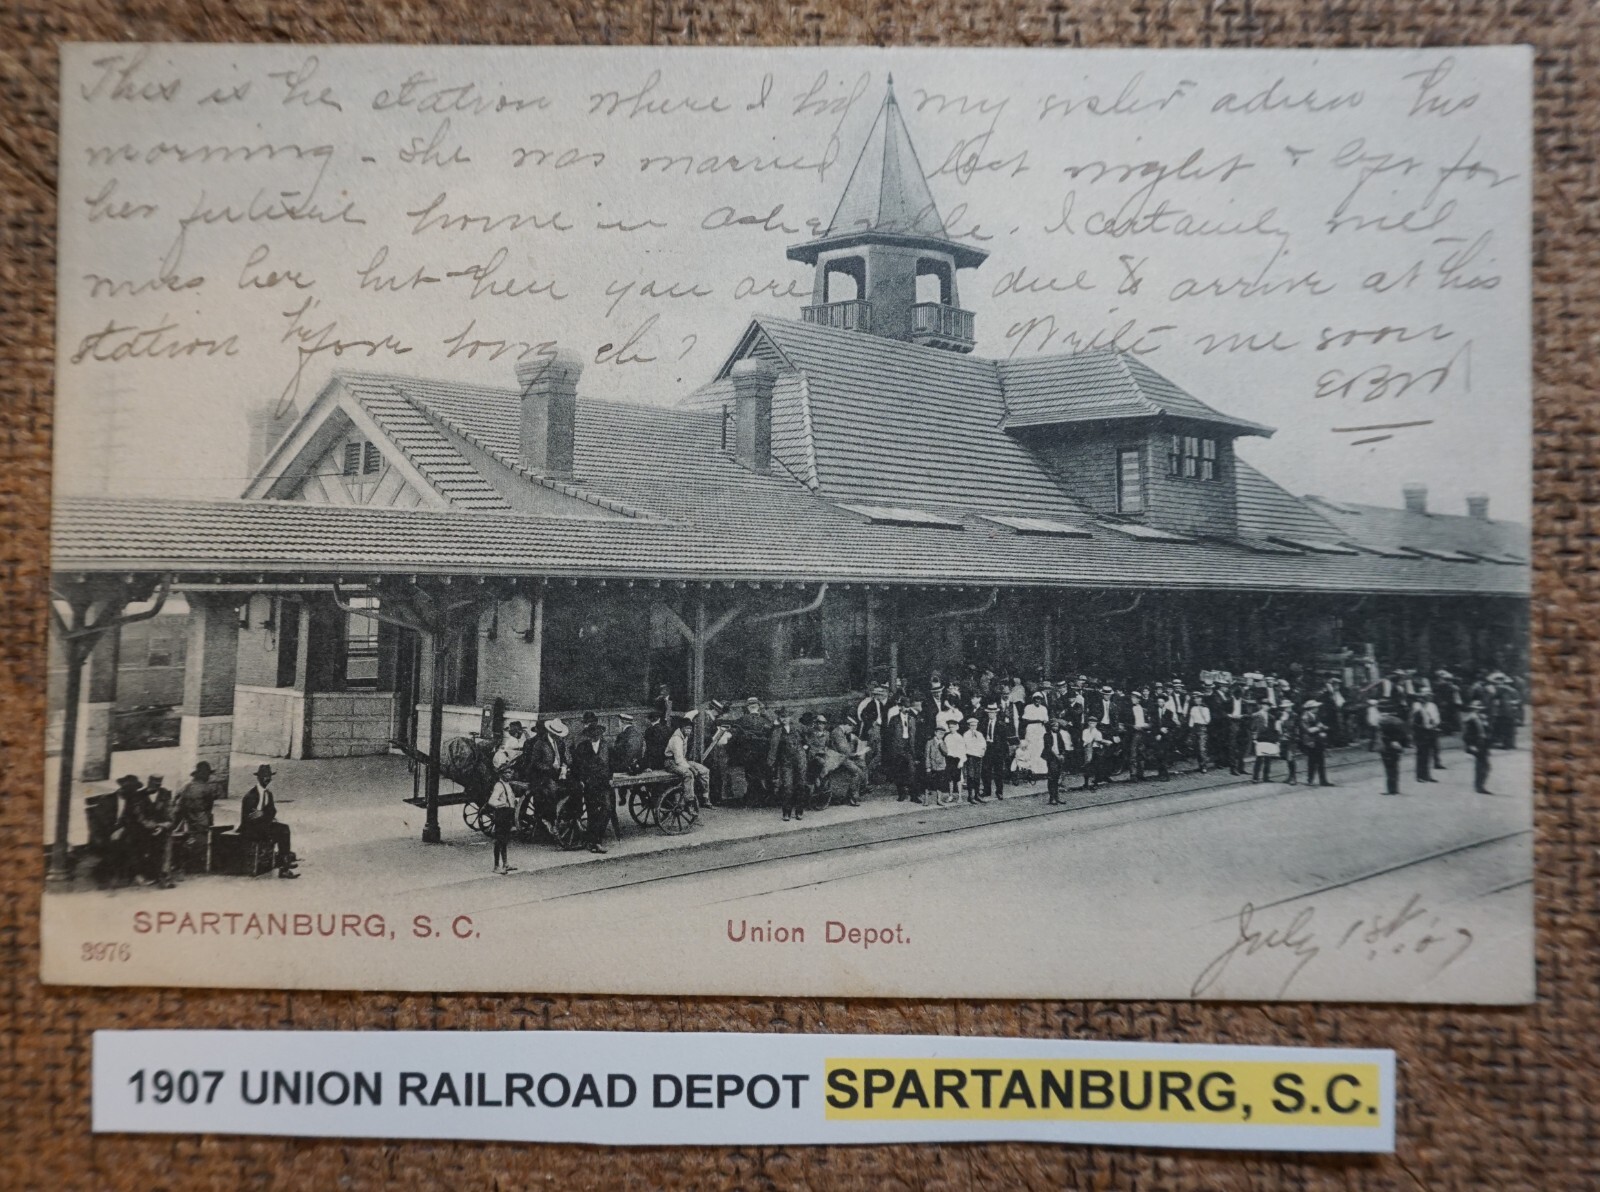 This is the station where I bid my sister adieu this
morning - She was married last night & left for
her future home in Asheville. I certainly will
miss her but then you are due to arrive at this
station before long eh? Write me soon
SPARTANBURG, S. C.
3976
Union Depot.
July 1st, '07
1907 UNION RAILROAD DEPOT SPARTANBURG, S.C.